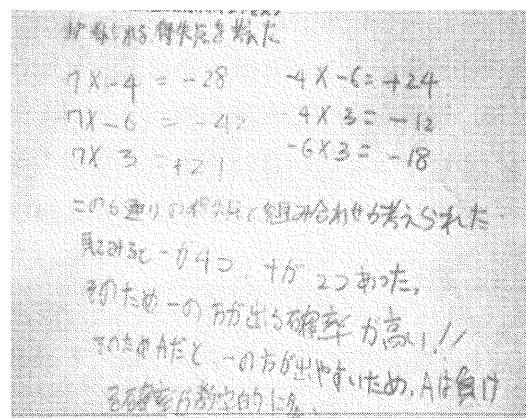 られる得失点を考えた
7×-4 = -28 -4×-6=+24
7×-6 = -42 -4×3=-12
7×3 = +21 -6×3=-18
この6通りの得失点と組み合わせが考えられた
見てみると-が4つ、+が2つあった。
そのため-の方が出る確率が高い!//
そのためAだと -の方が出やすいため、Aは負け
る確率が数字的に